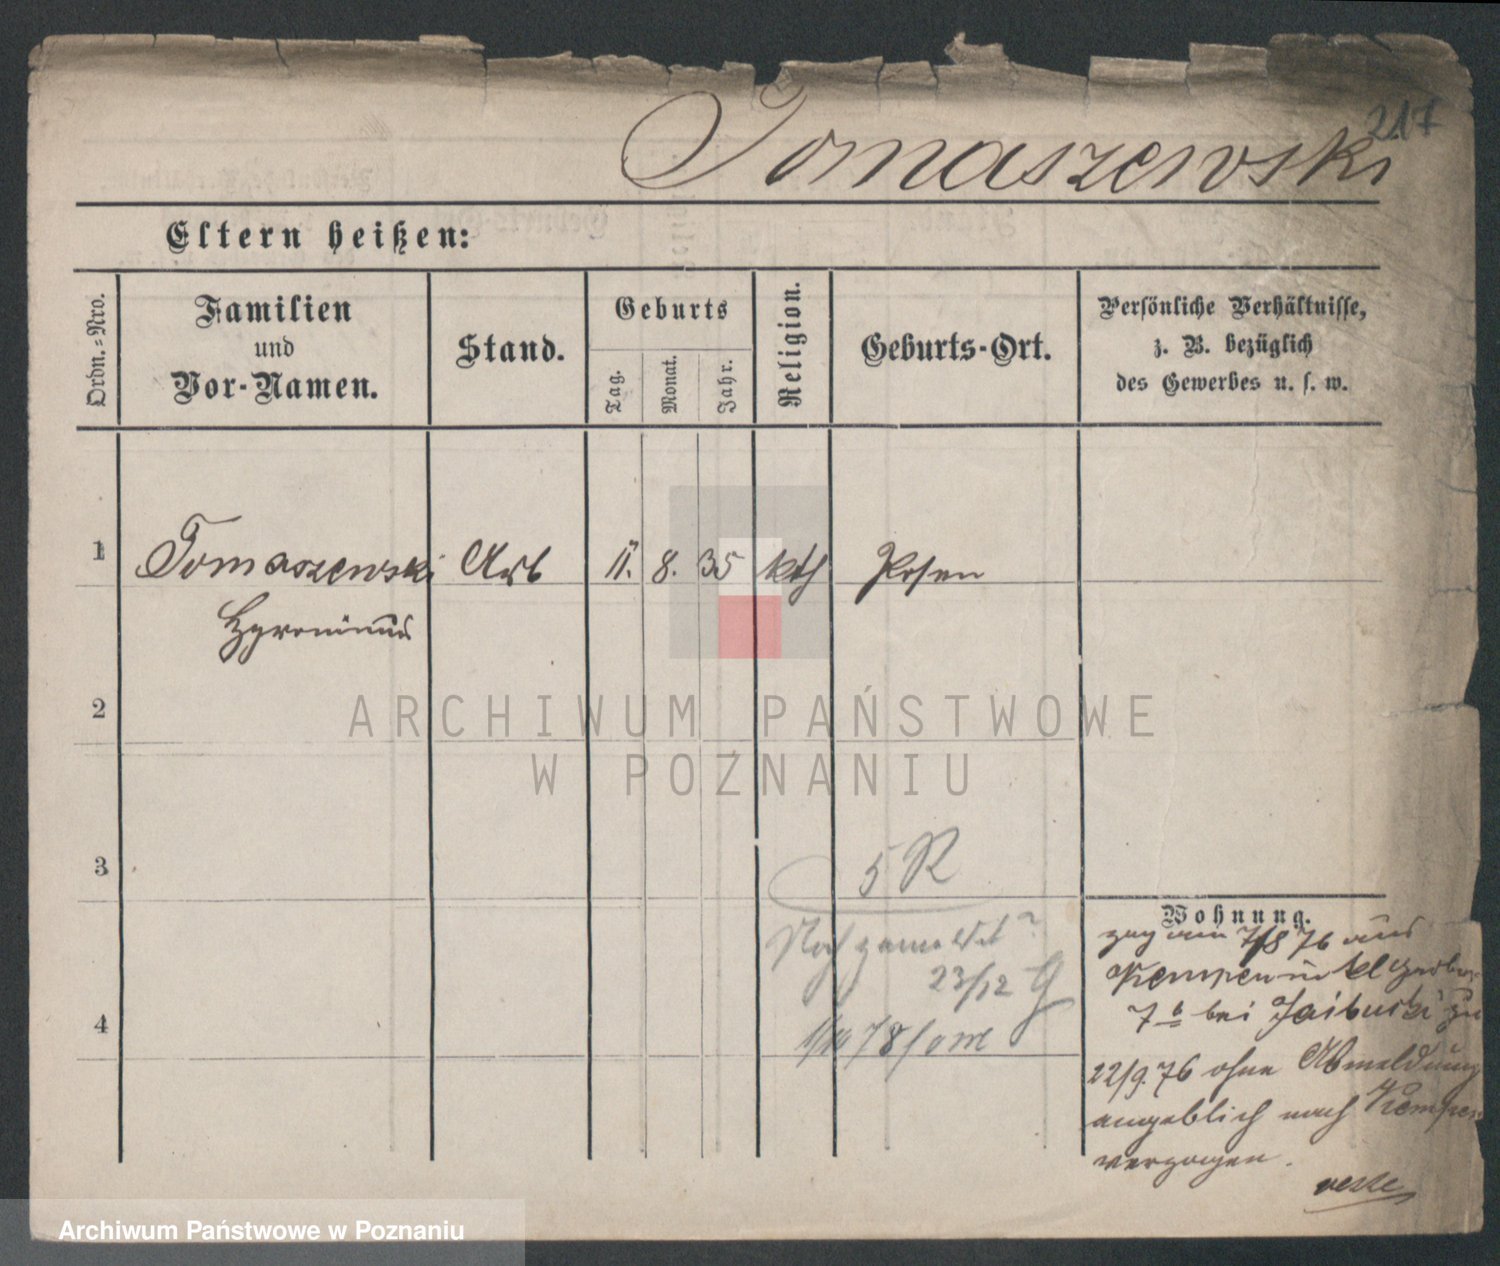 217
Tomaszewski
Eltern heißen:
Ordn.-Nro.
Familien
und
Vor-Namen.
Stand.
Geburts
Tag.
Monat.
Jahr.
Religion.
Geburts-Ort.
Persönliche Verhältnisse,
z. B. bezüglich
des Gewerbes u. s. w.
1 Tomaszewski Arb 11. 8. 35 kth Posen
Hyronimus
2
ARCHIWUM PAŃSTWOWE
W POZNANIU
3
5 R
Noch gemeldet?
23/12 G
4
Wohnung.
zog am 7/8 76 aus
Kempen in kl
7 b bei zu
22/9. 76 ohne Abmeldung
angeblich nach Kempen
verzogen.
Archiwum Państwowe w Poznaniu